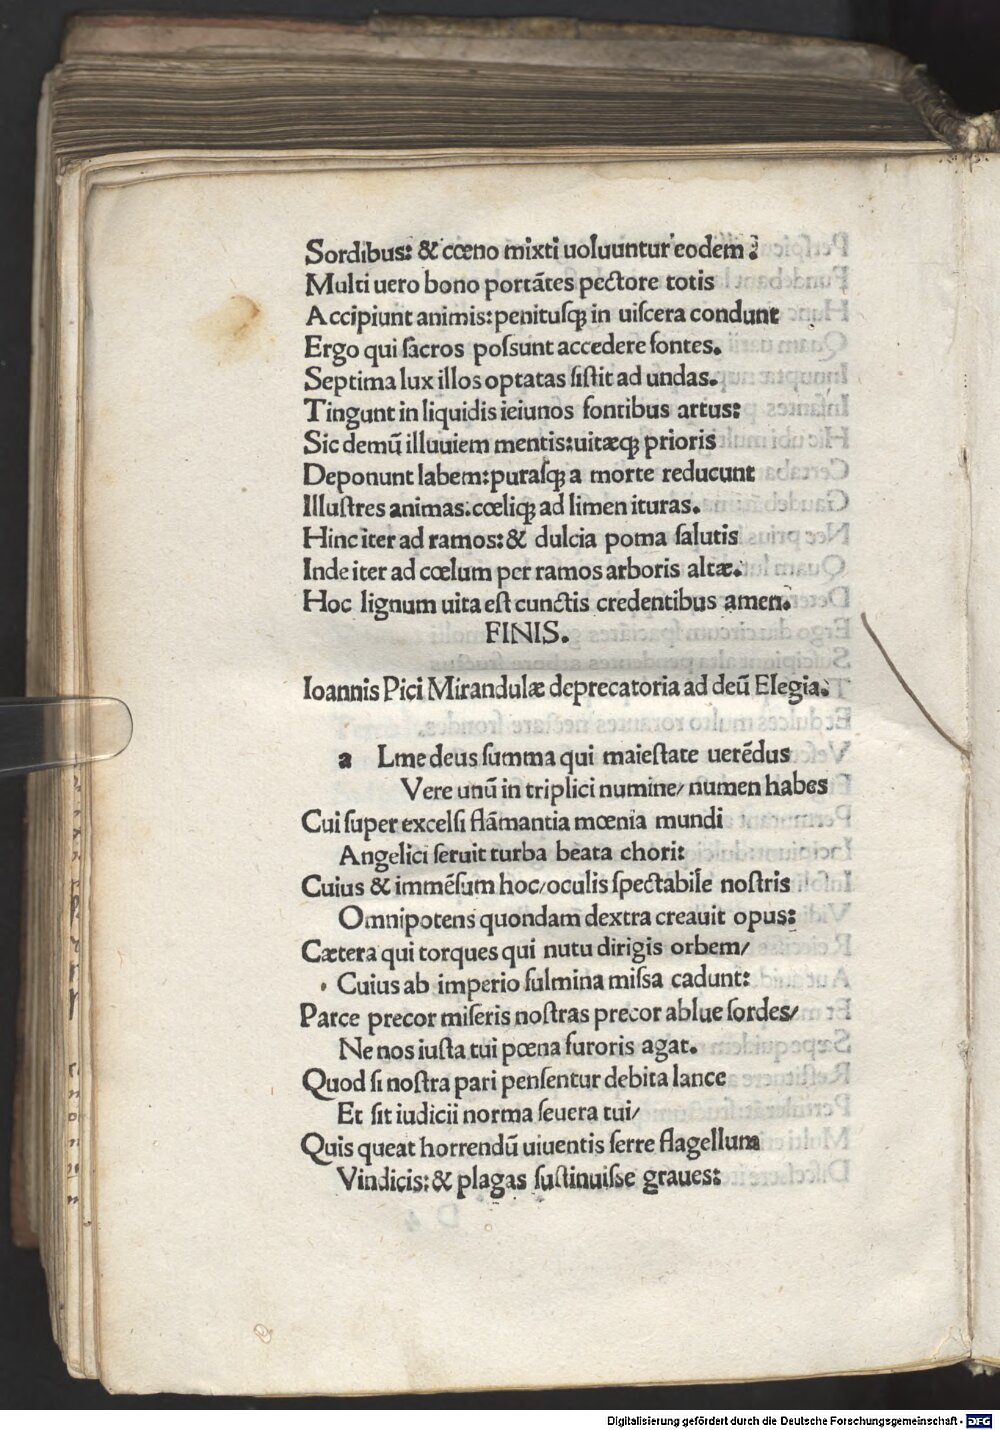 Sordibus: & cœno mixti uoluuntur eodem.
Multi uero bono portãtes pectore totis
Accipiunt animis: penitusꝙ in uiſcera condunt
Ergo qui ſacros poſſunt accedere fontes.
Septima lux illos optatas ſiſtit ad undas.
Tingunt in liquidis ieiunos fontibus artus:
Sic demũ illuuiem mentis: uitæꝙ prioris
Deponunt labem: puraſꝙ a morte reducunt
Illuſtres animas: cœliꝙ ad limen ituras.
Hinc iter ad ramos: & dulcia poma ſalutis
Inde iter ad cœlum per ramos arboris altæ.
Hoc lignum uita eſt cunctis credentibus amen.
FINIS.
Ioannis Pici Mirandulæ deprecatoria ad deũ Elegia.
a Lme deus ſumma qui maieſtate uerẽdus
Vere unũ in triplici numine/ numen habes
Cui ſuper excelſi flãmantia mœnia mundi
Angelici ſeruit turba beata chori:
Cuius & immẽſum hoc/ oculis ſpectabile noſtris
Omnipotens quondam dextra creauit opus:
Cætera qui torques qui nutu dirigis orbem/
Cuius ab imperio fulmina miſſa cadunt:
Parce precor miſeris noſtras precor ablue ſordes/
Ne nos iuſta tui pœna furoris agat.
Quod ſi noſtra pari penſentur debita lance
Et ſit iudicii norma ſeuera tui/
Quis queat horrendũ uiuentis ferre flagellum
Vindicis: & plagas ſuſtinuiſſe graues:
Digitalisierung gefördert durch die Deutsche Forschungsgemeinschaft - DFG